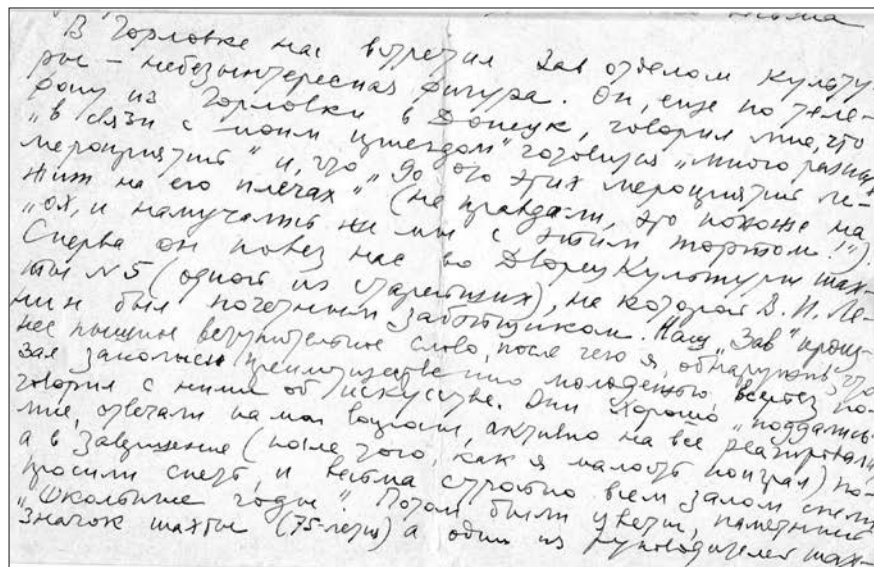 письма
"В Горловке нас встретил Зав отделом культу-
ры – небезынтересная фигура. Он, еще по теле-
фону из Горловки в Донецк, говорил мне, что
"в связи с моим приездом" готовится "много разных
мероприятий" и, что "до ого этих мероприятий ле-
жит на его плечах" (не правда ли, это похоже на
"ох, и намучались же мы с этим тортом!").
Сперва он повез нас во Дворец Культуры шах-
ты №5 (одной из старейших), на которой В. И. Ле-
нин был почетным забойщиком. Наш "Зав" произ-
нес пышное вступительное слово, после чего я, обнаружив, что
зал заполнен преимущественно молодежью, всерьез по-
говорил с ними об искусстве. Они хорошо "поддались"
мне, отвечали на мои вопросы, активно на всё реагировали,
а в завершение (после того, как я малость поиграл) по-
просили спеть, и весьма стройно всем залом спели
"Школьные годы". Потом были цветы, памятный
значок шахты (75-летия) а один из руководителей шах-